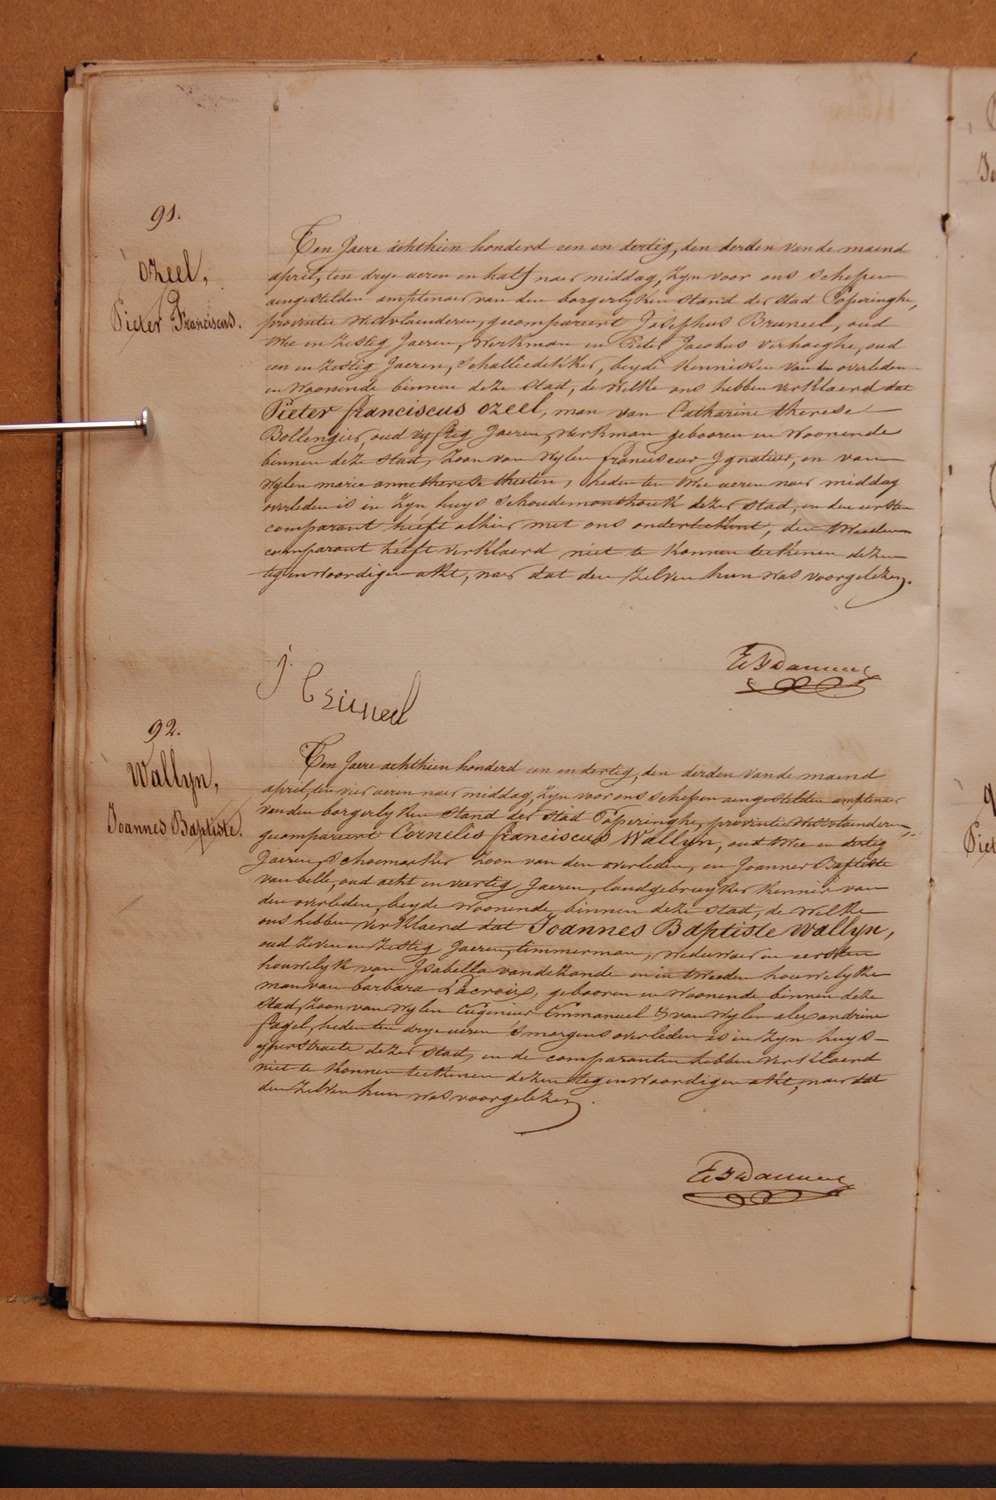 91.
Ozeel,
Pieter Franciscus.
Ten Jaere achthien honderd een en dertig, den derden van de maend
april, ten drye ueren en half naer middag, zyn voor ons schepen
aengestelden amptenaer van den borgerlyken stand der stad Poperinghe,
provintie Westvlaenderen, gecompareert Josephus Bruneel, oud
twee en zestig Jaeren, Werkman en Pieter Jacobus Verhaeghe, oud
een en zestig Jaeren, schalliedekker, beyde kennissen van den overleden
en Woonende binnen deze stad, de Welke ons hebben verklaerd dat
Pieter franciscus Ozeel, man van Catharine therese
Bollengier, oud vyftig Jaeren, Werkman gebooren en Woonende
binnen deze stad, zoon van Wylen franciscus Ignatius, en van
Wylen marie anne therese theeten, heden ten twee ueren naer middag
overleden is in zyn huys schoudemonthouk dezer stad, en den eersten
comparant heeft alhier met ons onderteekent, den tweeden
comparant heeft verklaerd niet te konnen teekenen dezen
tegenwoordigen akt, naer dat den zelven hun was voorgelezen.
J. Bruneel
92.
Wallyn,
Joannes Baptiste.
Ten Jaere achthien honderd een en dertig, den derden van de maend
april, ten vier ueren naer middag, zyn voor ons schepen aengestelden amptenaer
van den borgerlyken stand der stad Poperinghe, provintie Westvlaenderen,
gecompareert Cornelis franciscus Wallyn, oud twee en dertig
Jaeren, schoemaeker zoon van den overleden, en Joannes Baptiste
van belle, oud acht en veertig Jaeren, landgebruyker kennis van
den overleden, beyde woonende binnen deze stad, de Welke
ons hebben verklaerd dat Joannes Baptiste Wallyn,
oud zeven en zestig Jaeren, timmerman, weduwaer in eersten
houwelyk van Isabella vandekonde en in tweeden houwelyke
man van barbara Lacroix, gebooren en Woonende binnen deze
stad, zoon van Wylen Eugenius Emmanuel & van Wylen alexandrine
fagel, heden ten drye ueren 's morgens overleden is in zyn huys
yperstraete dezer stad, en de comparanten hebben verklaerd
niet te konnen teekenen dezen tegenwoordigen akt, naer dat
den zelven hun was voorgelezen.